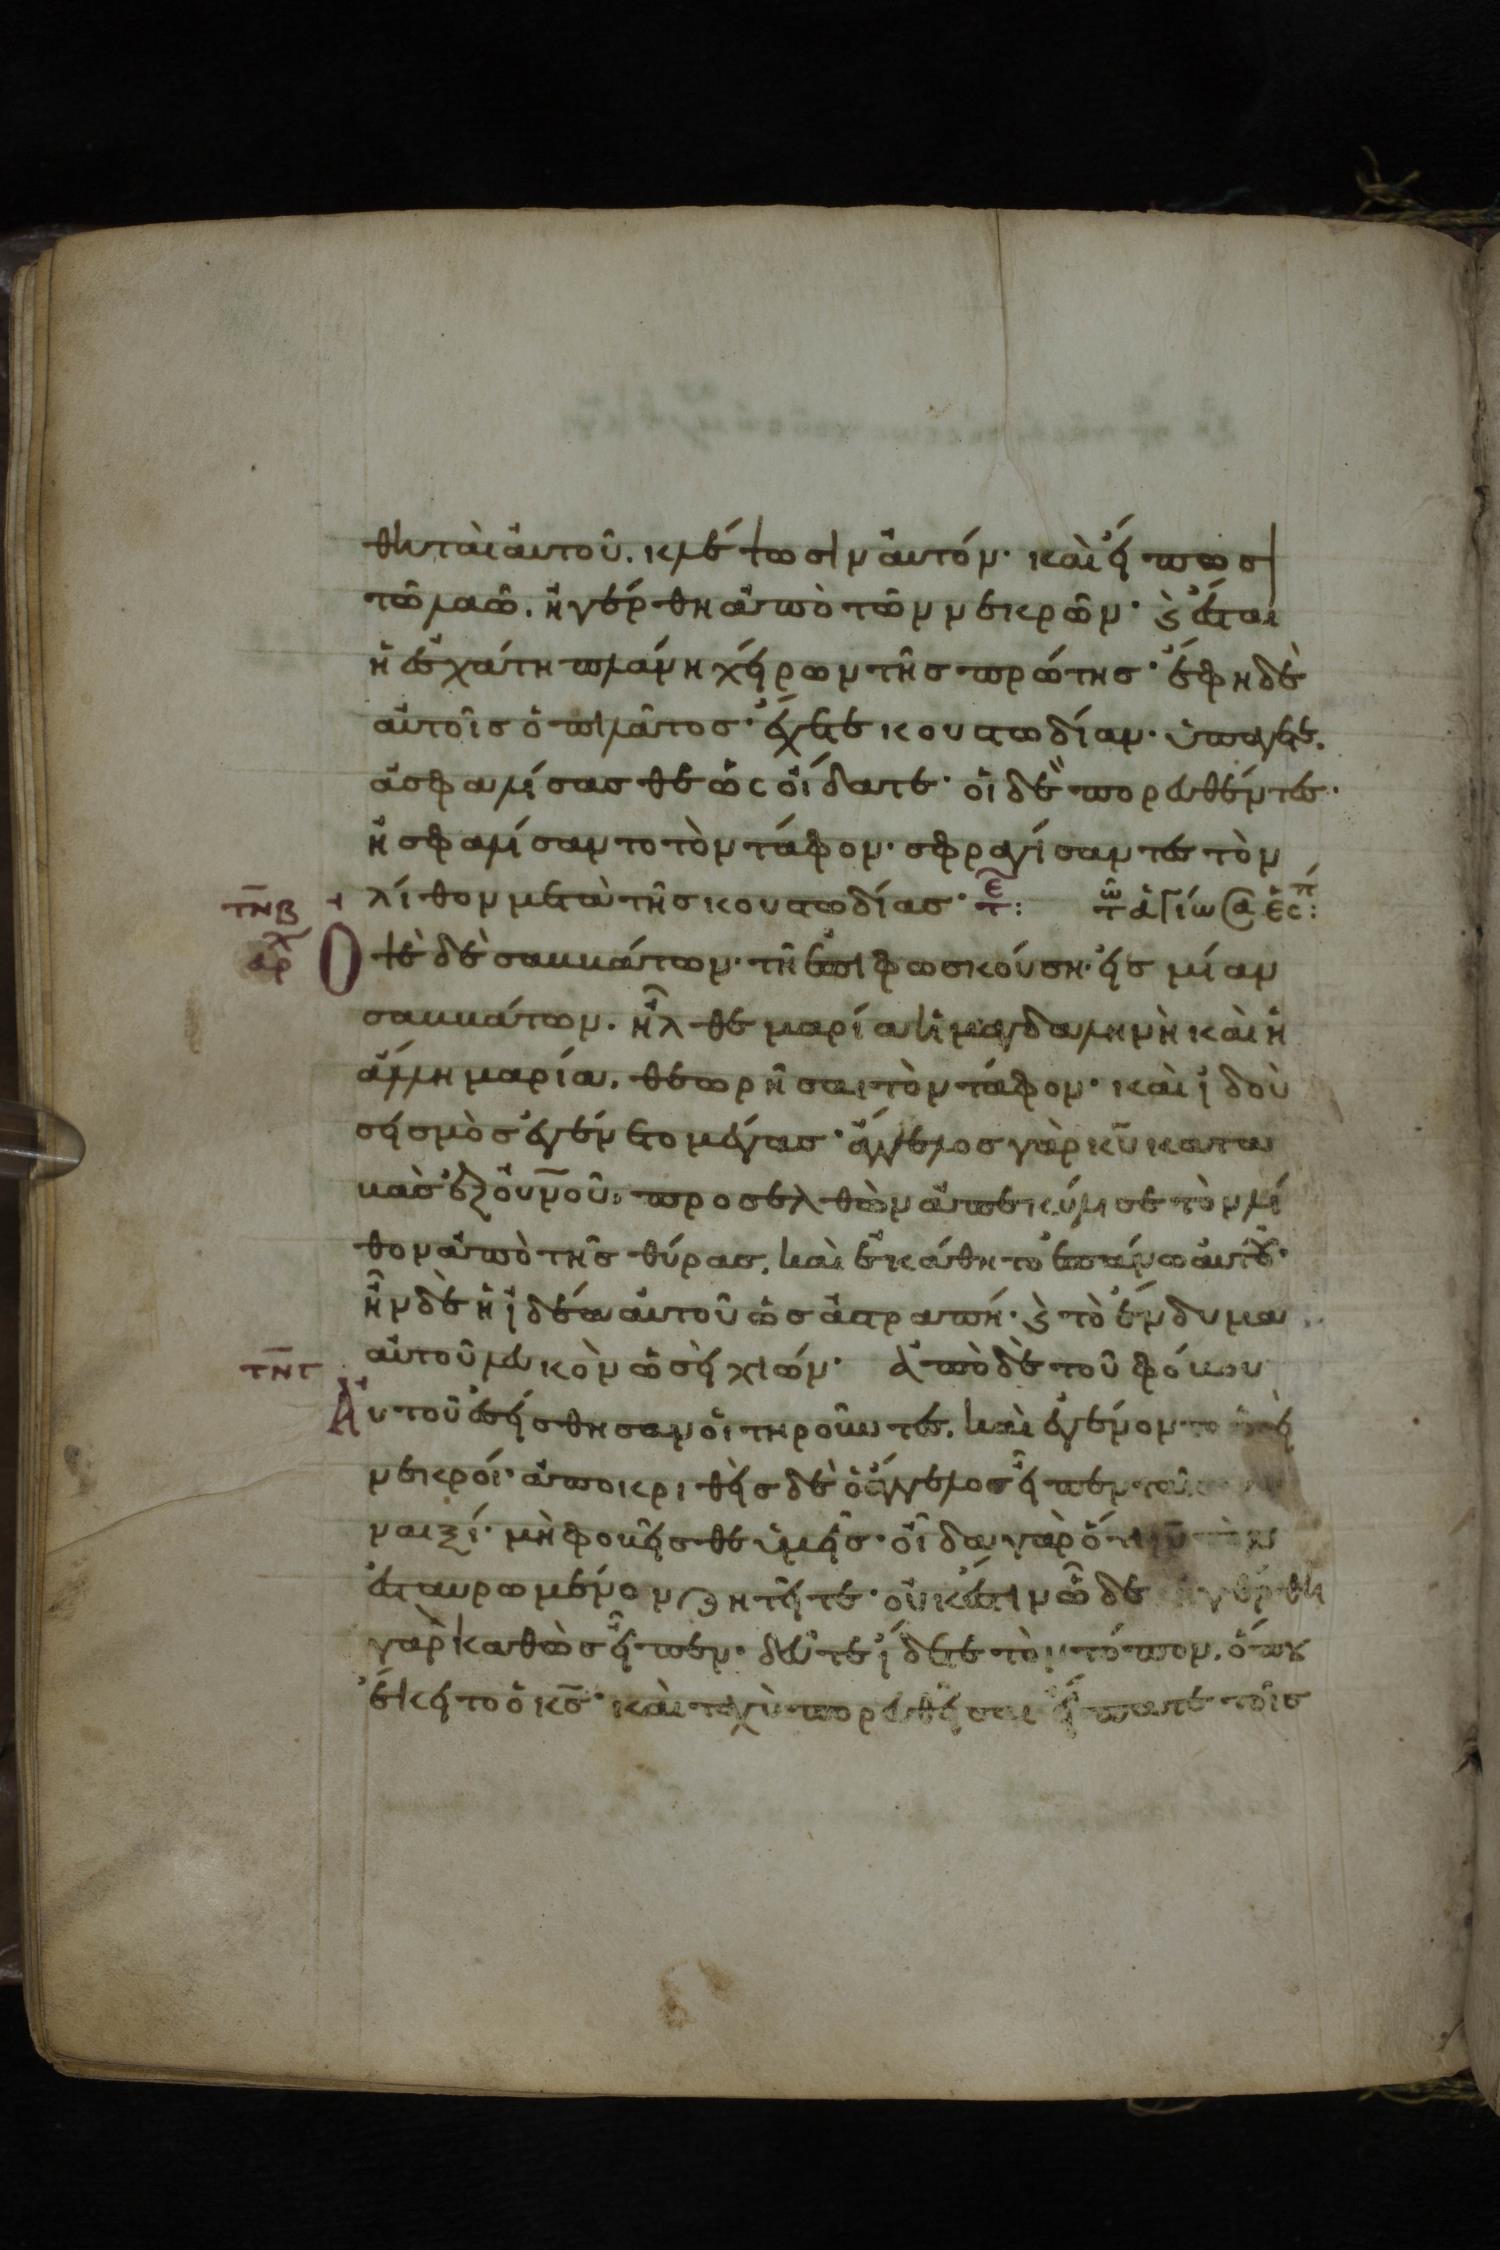 θηταὶ αὐτοῦ. κλέψωσιν αὐτόν· καὶ εἴπωσι
τῶ λαῶ. ἠγέρθη ἀπὸ τῶν νεκρῶν· ϗ ἔσται
ἡ ἐσχάτη πλάνη χείρων τῆς πρώτης· ἔφη δὲ
αὐτοῖς ὁ πιλᾶτος· ἔχετε κουστωδίαν· ὑπάγετε.
ἀσφαλίσασθε ὡς οἴδατε· οἱ δὲ πορευθέντες·
ἠσφαλίσαντο τὸν τάφον· σφραγίσαντες τὸν
τν̅β λίθον μετὰ τῆς κουστωδίας· τε: τῶ ἁγίω σα ἑσπ:
αρχ Ὀψὲ δὲ σαββάτων· τῆ ἐπιφωσκούση· εἰς μίαν
σαββάτων. ἦλθε μαρία ἡ μαγδαληνὴ καὶ ἡ
ἄλλη μαρία. θεωρῆσαι τὸν τάφον· καὶ ἰδοὺ
σεισμὸς ἐγένετο μέγας· ἄγγελος γὰρ κ̅υ̅ κατα
βὰς ἐξ οὐ̅ν̅οῦ· προσελθὼν ἀπεκύλισε τὸν λί
θον ἀπὸ τῆς θύρας. καὶ ἐκάθητο ἐπάνω αὐτοῦ·
ἦν δὲ ἡ ἰδέα αὐτοῦ ὡς ἀστραπή· ϗ τὸ ἔνδυμα
τν̅γ αὐτοῦ λευκὸν ὡσεὶ χιών· ἀπὸ δὲ τοῦ φόβου
Αὐτοῦ ἐσείσθησαν οἱ τηροῦντες. καὶ ἐγένοντο ὡσεὶ
νεκροί· ἀποκριθεὶς δὲ ὁ ἄγγελος εἶπεν ταῖς
ναιξί· μὴ φοβεῖσθε ὑμεῖς· οἶδα γὰρ ὅτι ι̅ν̅ τὸν
ἐσταυρωμένον ζητεῖτε· οὐκ ἔστιν ὧδε ἠγέρθη
γὰρ καθὼς εἶπεν· δεῦτε ἴδετε τὸν τόπον. ὅπου
ἔκειτο ὁ κ̅ς̅· καὶ ταχὺ πορευθεῖσαι εἴπατε τοῖς